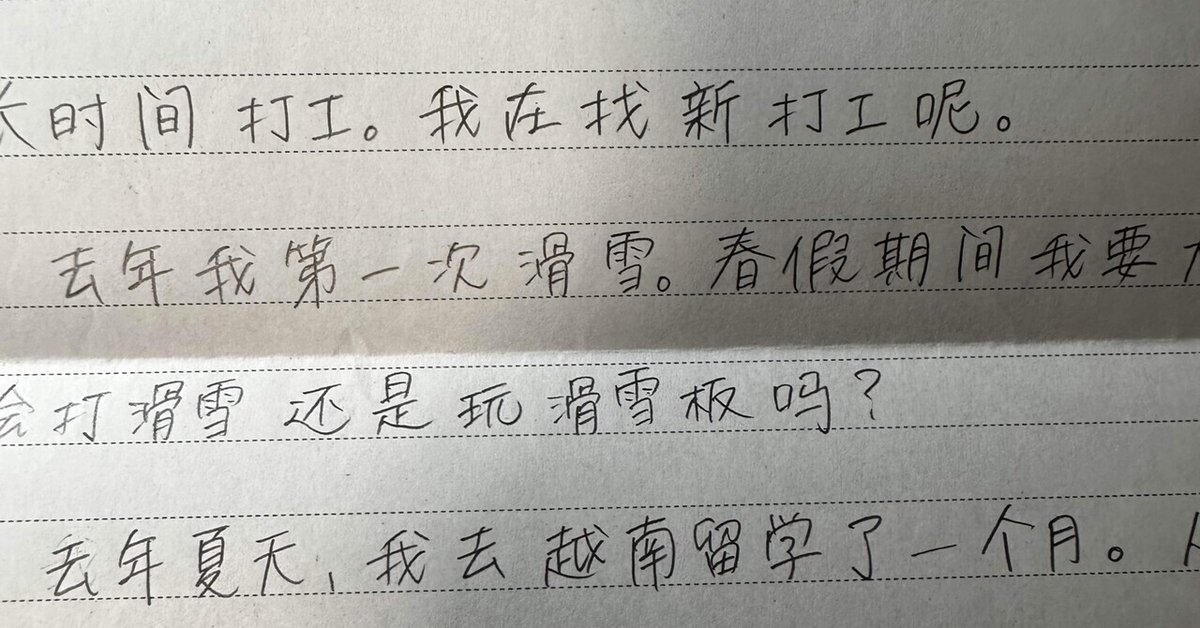 长时间打工。我在找新打工呢。
去年我第一次滑雪。春假期间我要
会打滑雪还是玩滑雪板吗？
去年夏天，我去越南留学了一个月。